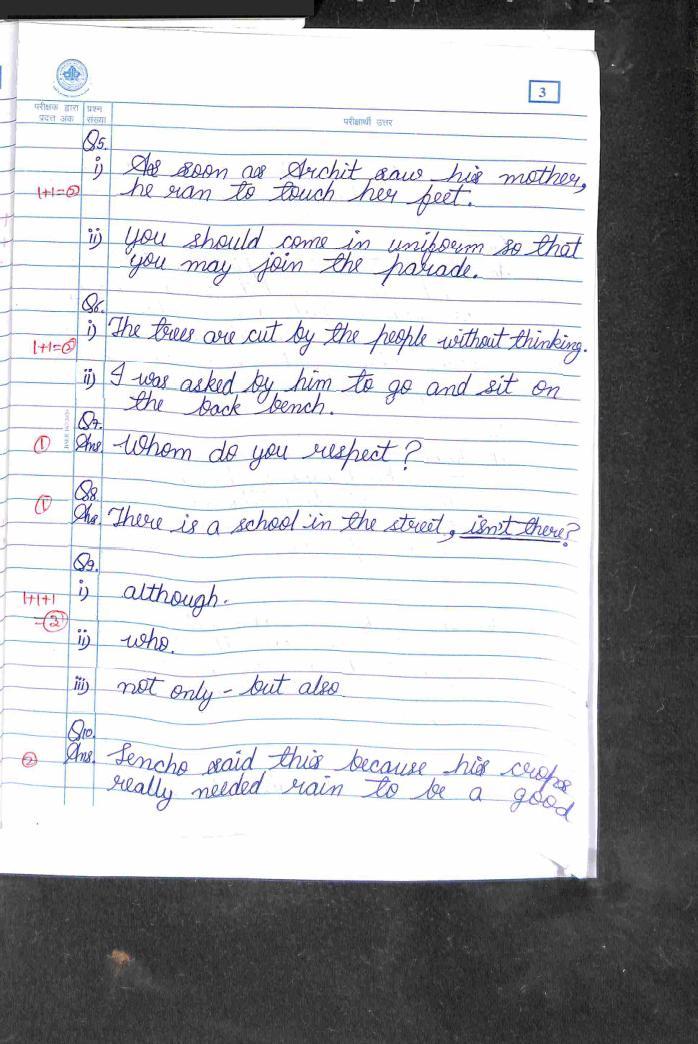 3
परीक्षक द्वारा प्रदत्त अंक
प्रश्न संख्या
परीक्षार्थी उत्तर
Q5.
i) As soon as Archit saw his mother,
he ran to touch her feet.
1+1=2
ii) you should come in uniform so that
you may join the parade.
Q6.
i) The trees are cut by the people without thinking.
1+1=2
ii) I was asked by him to go and sit on
the back bench.
Q7.
1 Ans. Whom do you respect?
Q8.
1 Ans. There is a school in the street, isn't there?
Q9.
i) although.
1+1+1
=3
ii) who.
iii) not only - but also
Q10.
2 Ans. Lencho said this because his crops
really needed rain to be a good